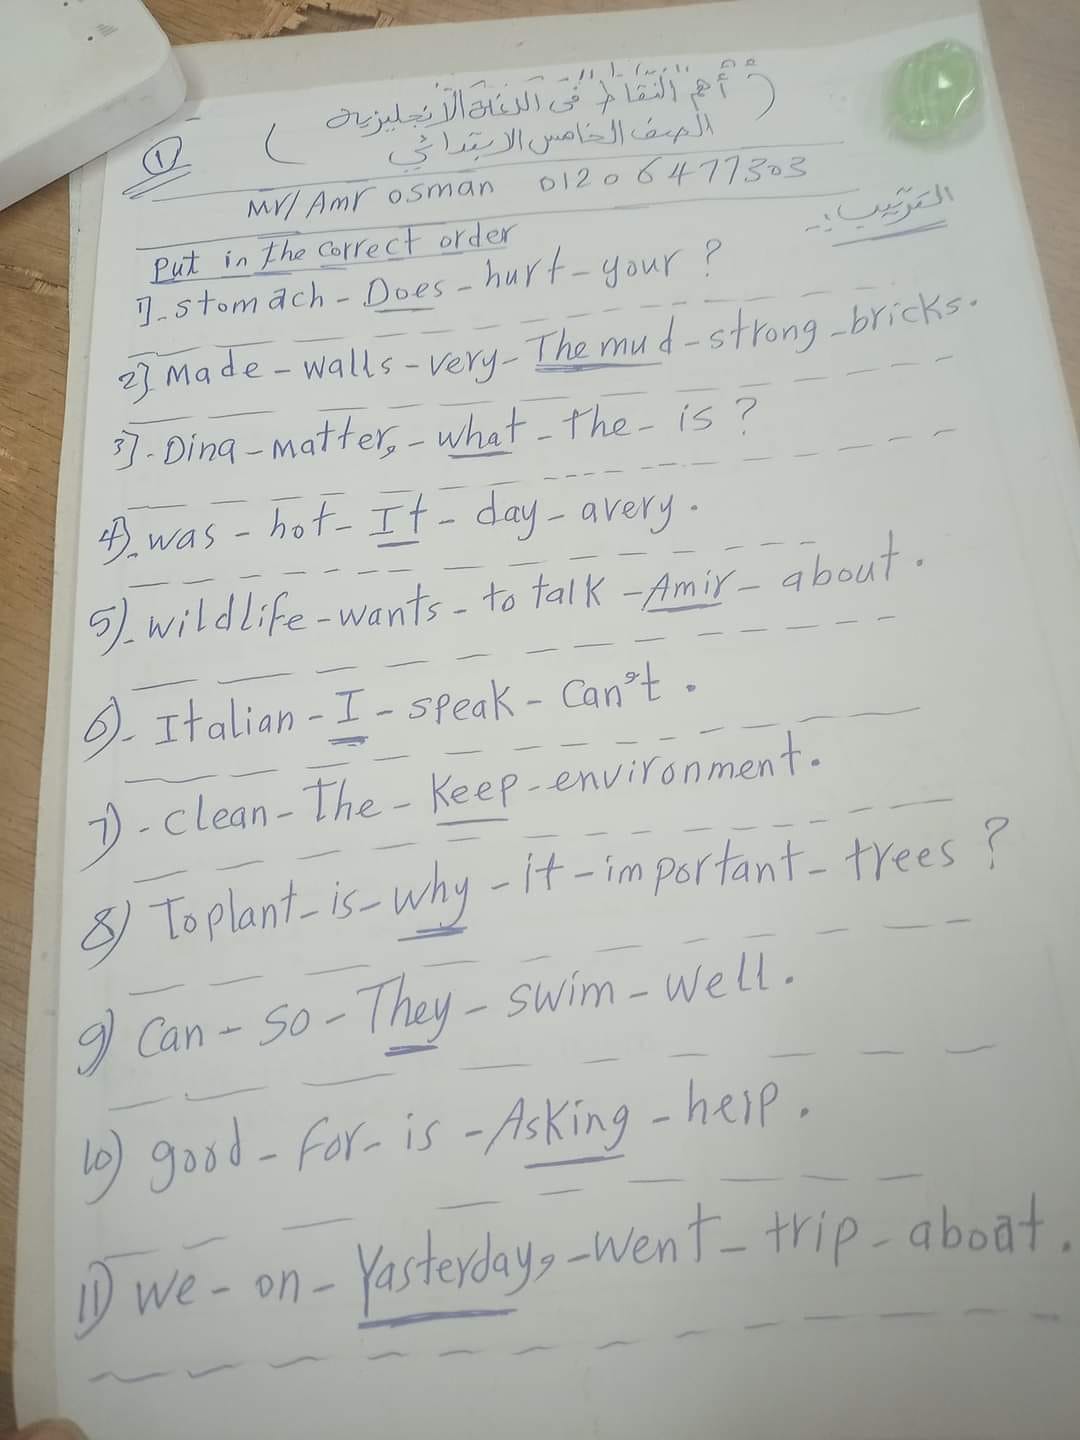 ( أهم النقاط فى اللغة الانجليزية )
الصف الخامس الابتدائي
①
Mr/ Amr osman 01206477303
الترتيب :-
Put in the correct order
1]-stomach - Does - hurt - your ?
2] Made - walls - very - The mud - strong - bricks.
3]- Dina - matter, - what - the - is ?
4]- was - hot - It - day - avery.
5)- wildlife - wants - to talk - Amir - about.
6)- Italian - I - speak - Can't.
7)- clean - The - Keep - environment.
8) To plant - is - why - it - important - trees ?
9) Can - so - They - swim - well.
10) good - for - is - Asking - help.
11) we - on - Yasterday, - went - trip - aboat.